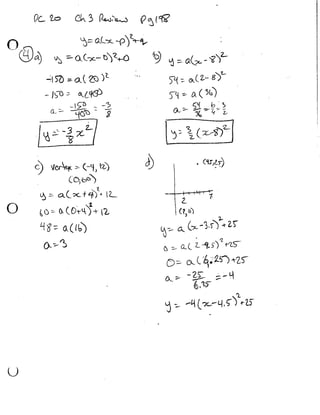 PC 20 Ch 3 Review pg 198
y = a(x-p)²+q
④ a) y = a(x-0)²+0
-150 = a(20)²
-150 = a(400)
a = -150/400 = -3/8
y = -3/8 x²
b) y = a(x-8)²
54 = a(2-8)²
54 = a(36)
a = 54/36 = 6/4 = 3/2
y = 3/2 (x-8)²
c) Vertex = (-4, 12)
(0,60)
y = a(x+4)²+12
60 = a(0+4)²+12
48 = a(16)
a = 3
d)
2
(2,0)
y = a(x-3.5)²+25
0 = a(2-4.5)²+25
0 = a(6.25)+25
a = -25/6.25 = -4
y = -4(x-4.5)²+25